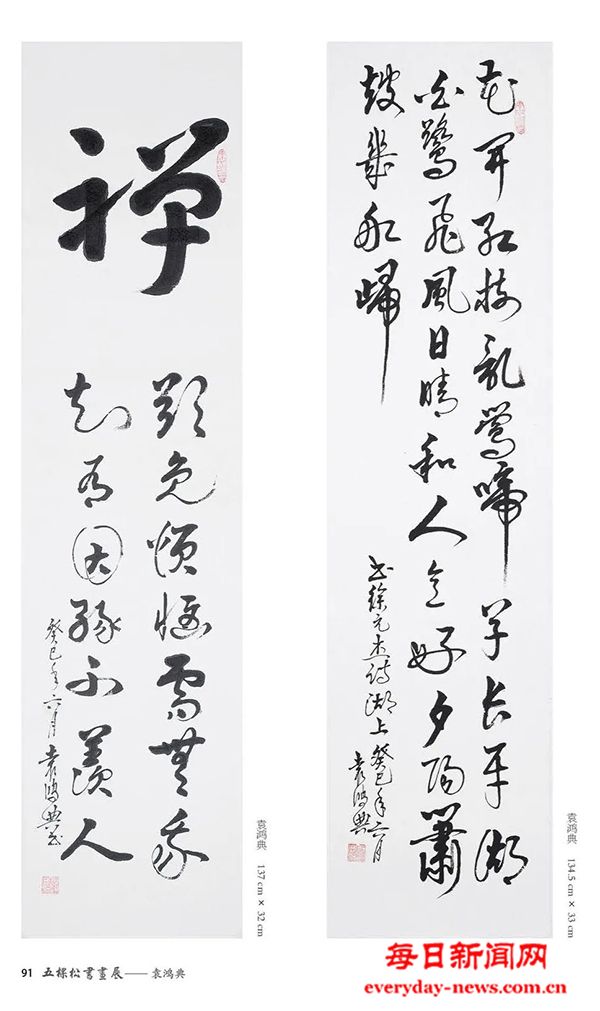 花开红树乱鶯啼草长平湖
白鷺飛風日晴和人意好夕阳箫
鼓幾船歸
书徐元杰诗湖上癸巳年六月
袁鸿典
袁鸿典 134.5 cm × 33 cm
禅
欲免烦恼需無我
知有因缘不羡人
癸巳年六月袁鸿典书
袁鸿典 137 cm × 32 cm
91 五棵松書畫展——袁鸿典
每日新闻网
everyday-news.com.cn